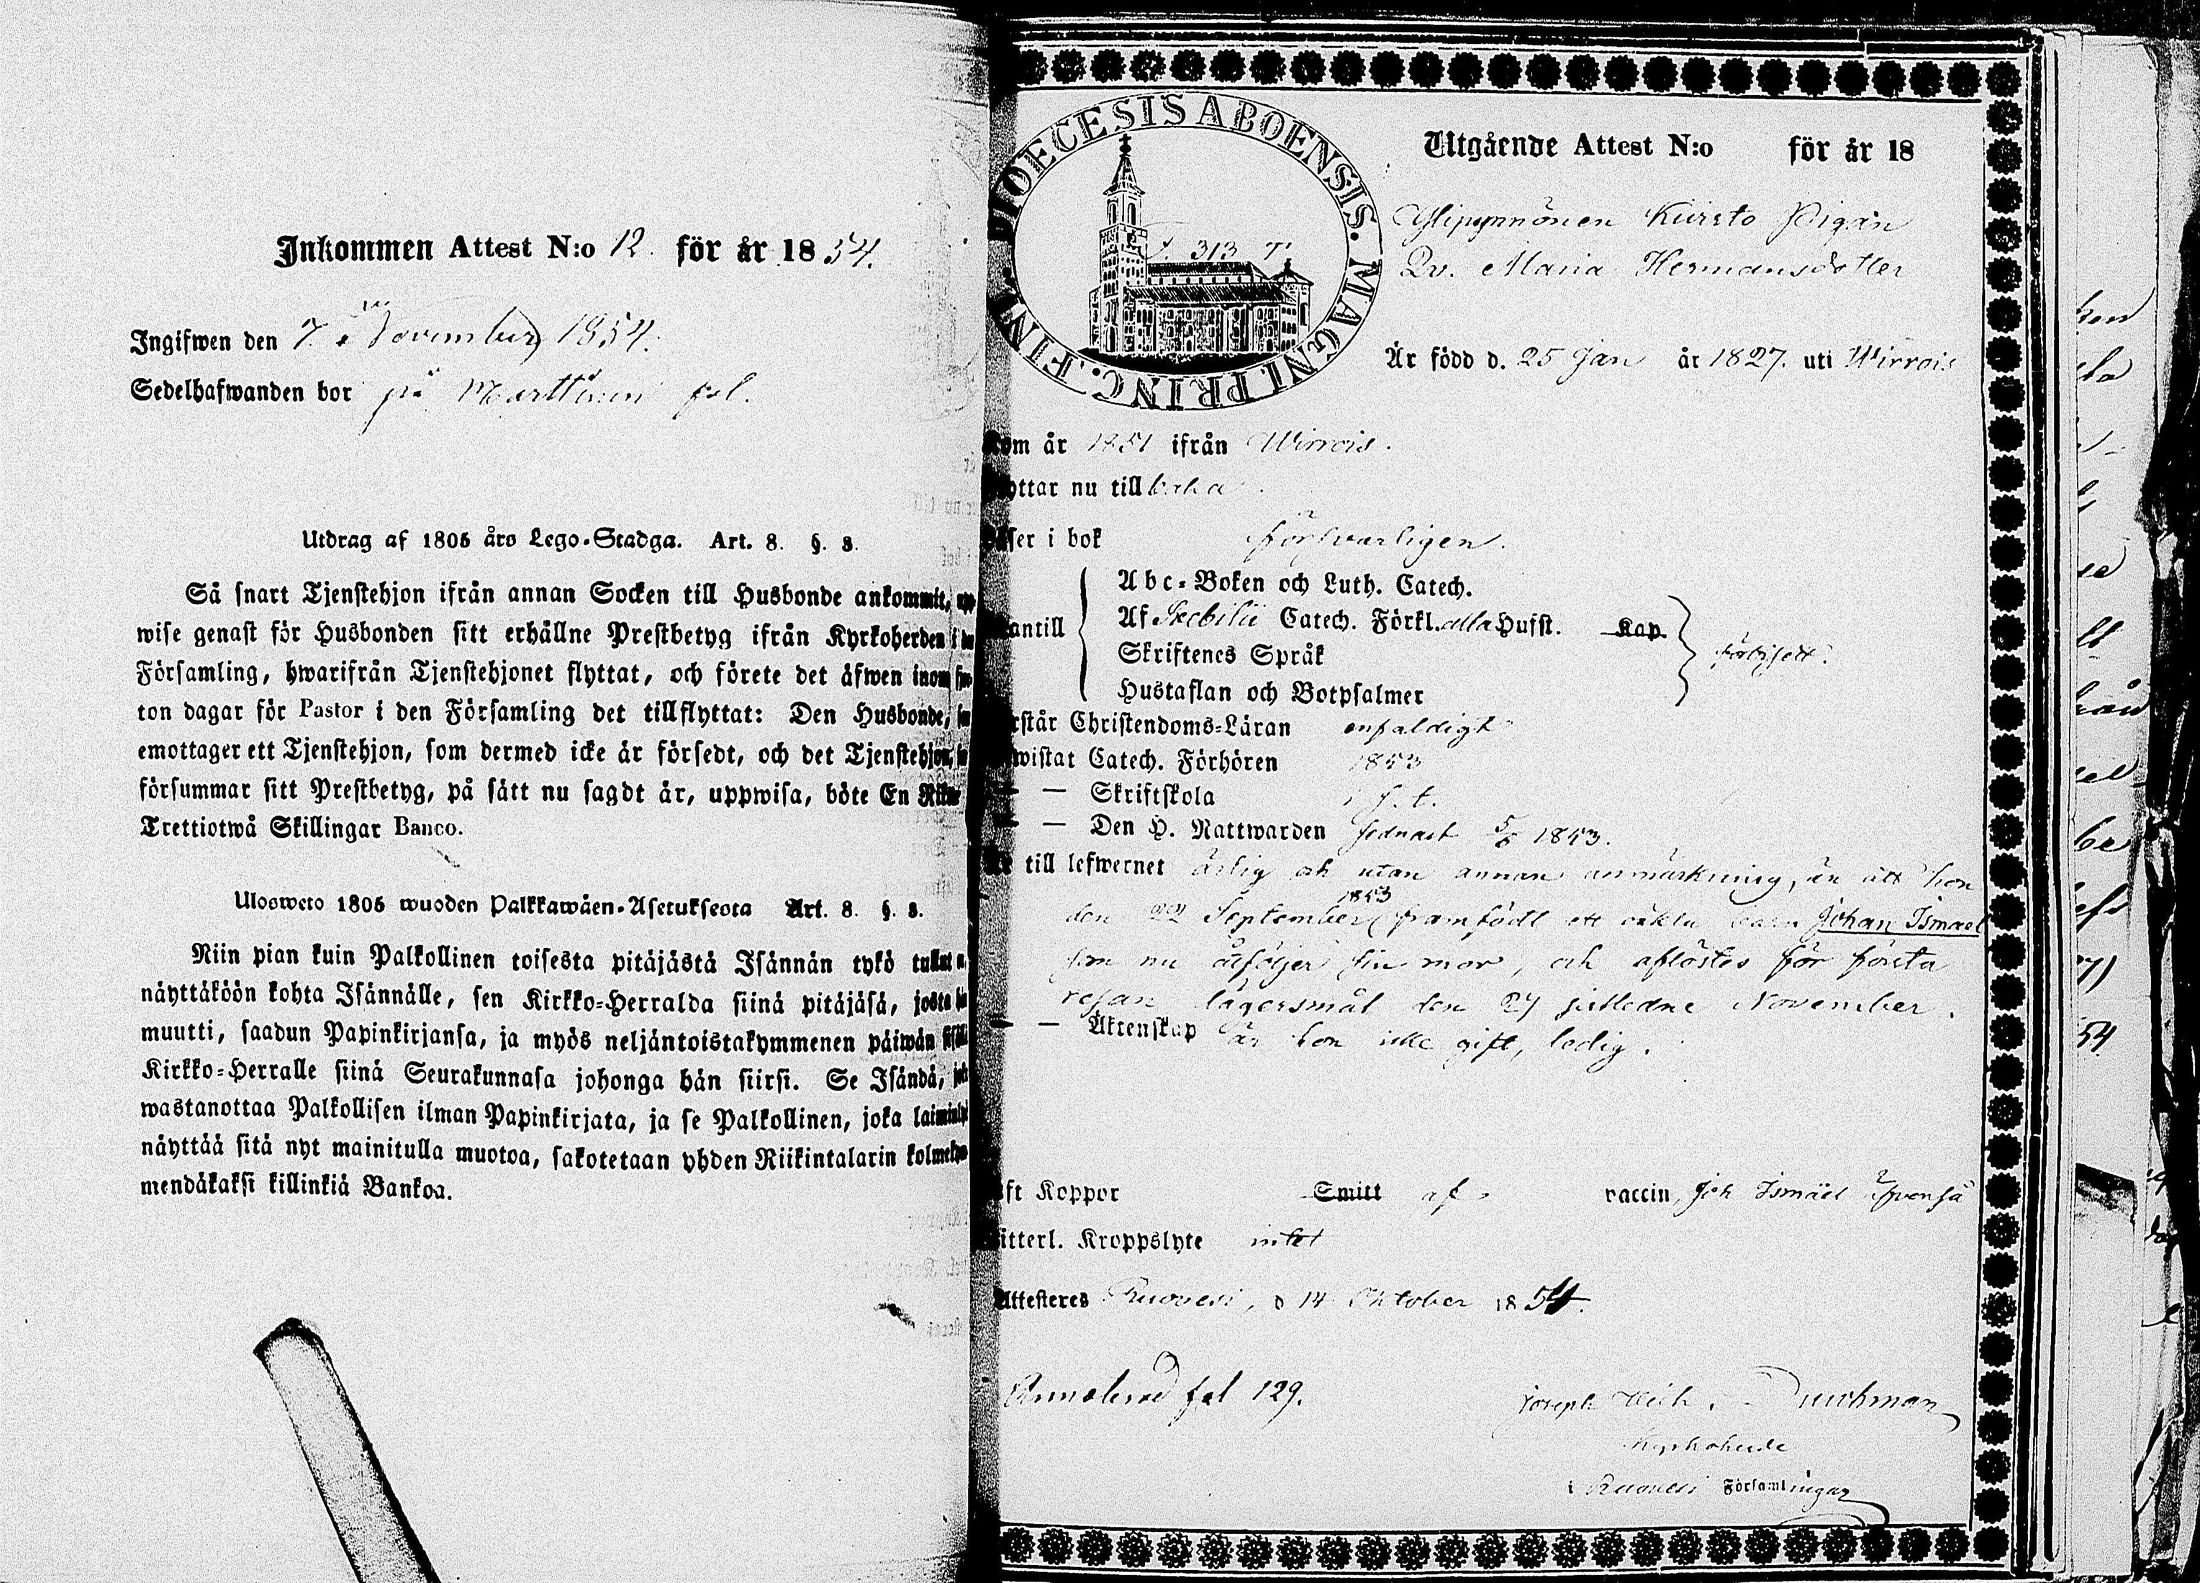 Inkommen Attest N:o 12. för år 1854.
Ingifwen den 7 November 1854.
Sedelhafwanden bor på Marttinen fol.
Utdrag af 1805 års Lego-Stadga. Art. 8. §. 3.
Så snart Tjenstehjon ifrån annan Socken till Husbonde ankommit,
wise genast för Husbonden sitt erhållne Prestbetyg ifrån Kyrkoherden i
Församling, hwarifrån Tjenstehjonet flyttat, och förete det äfwen inom
ton dagar för Pastor i den Församling det tillflyttat: Den Husbonde,
emottager ett Tjenstehjon, som dermed icke är försedt, och det Tjenstehjon,
försummar sitt Prestbetyg, på sätt nu sagdt är, uppwisa, böte En
Trettiotwå Skillingar Banco.
Ulosweto 1805 wuoden Palkkawäen-Asetuksesta Art. 8. §. 3.
Niin pian kuin Palkollinen toisesta pitäjästä Isännän tykö
näyttäköön kohta Isännälle, sen Kirkko-Herralda siinä pitäjäsä, josta
muutti, saadun Papinkirjansa, ja myös neljäntoistakymmenen päiwän
Kirkko-Herralle siinä Seurakunnasa johonga hän siirsi. Se Isändä,
wastanottaa Palkollisen ilman Papinkirjata, ja se Palkollinen, joka
näyttää sitä nyt mainitulla muotoa, sakotetaan yhden Riikintalarin
mendäkaksi killinkiä Bankoa.
DIOECESIS ABOENSIS. MAGNI. PRINC. FINL.
313
Utgående Attest N:o för år 18
Ylipynnönen Kuirsto Pigan
Qv. Maria Hermansdotter
Är född d. 25 Jan år 1827. uti Wirrois
Kom år 1851 ifrån Wirrois.
ottar nu tillbaka.
ser i bok försvarligen.
Abc-Boken och Luth. Catech.
antill Af Svebilii Catech. Förkl. alla Hufst. Kap.
Skriftenes Språk
Hustaflan och Botpsalmer
rstår Christendoms-Läran enfaldigt
wistat Catech. Förhören 1853
— — Skriftskola
— — Den H. Nattwarden sednast 5/6 1853.
till lefwernet ärlig och utan annan anmärkning, än att hon
1853
den 22 September framfödt ett oäkta barn Johan Ismael
som nu åtföljer sin mor, och aflöstes för första
resan lägersmål den 27 sistledne November.
— Äktenskap är hon icke gift, ledig.
ft Koppor Smitt af vaccin, Joh Ismäel
itterl. Kroppslyte intet
Attesteres Ruovesi, d 14 Oktober 1854.
fol 129.
Joseph Wilh. Durchman
Kyrkoherde
i Ruovesi Församlingar